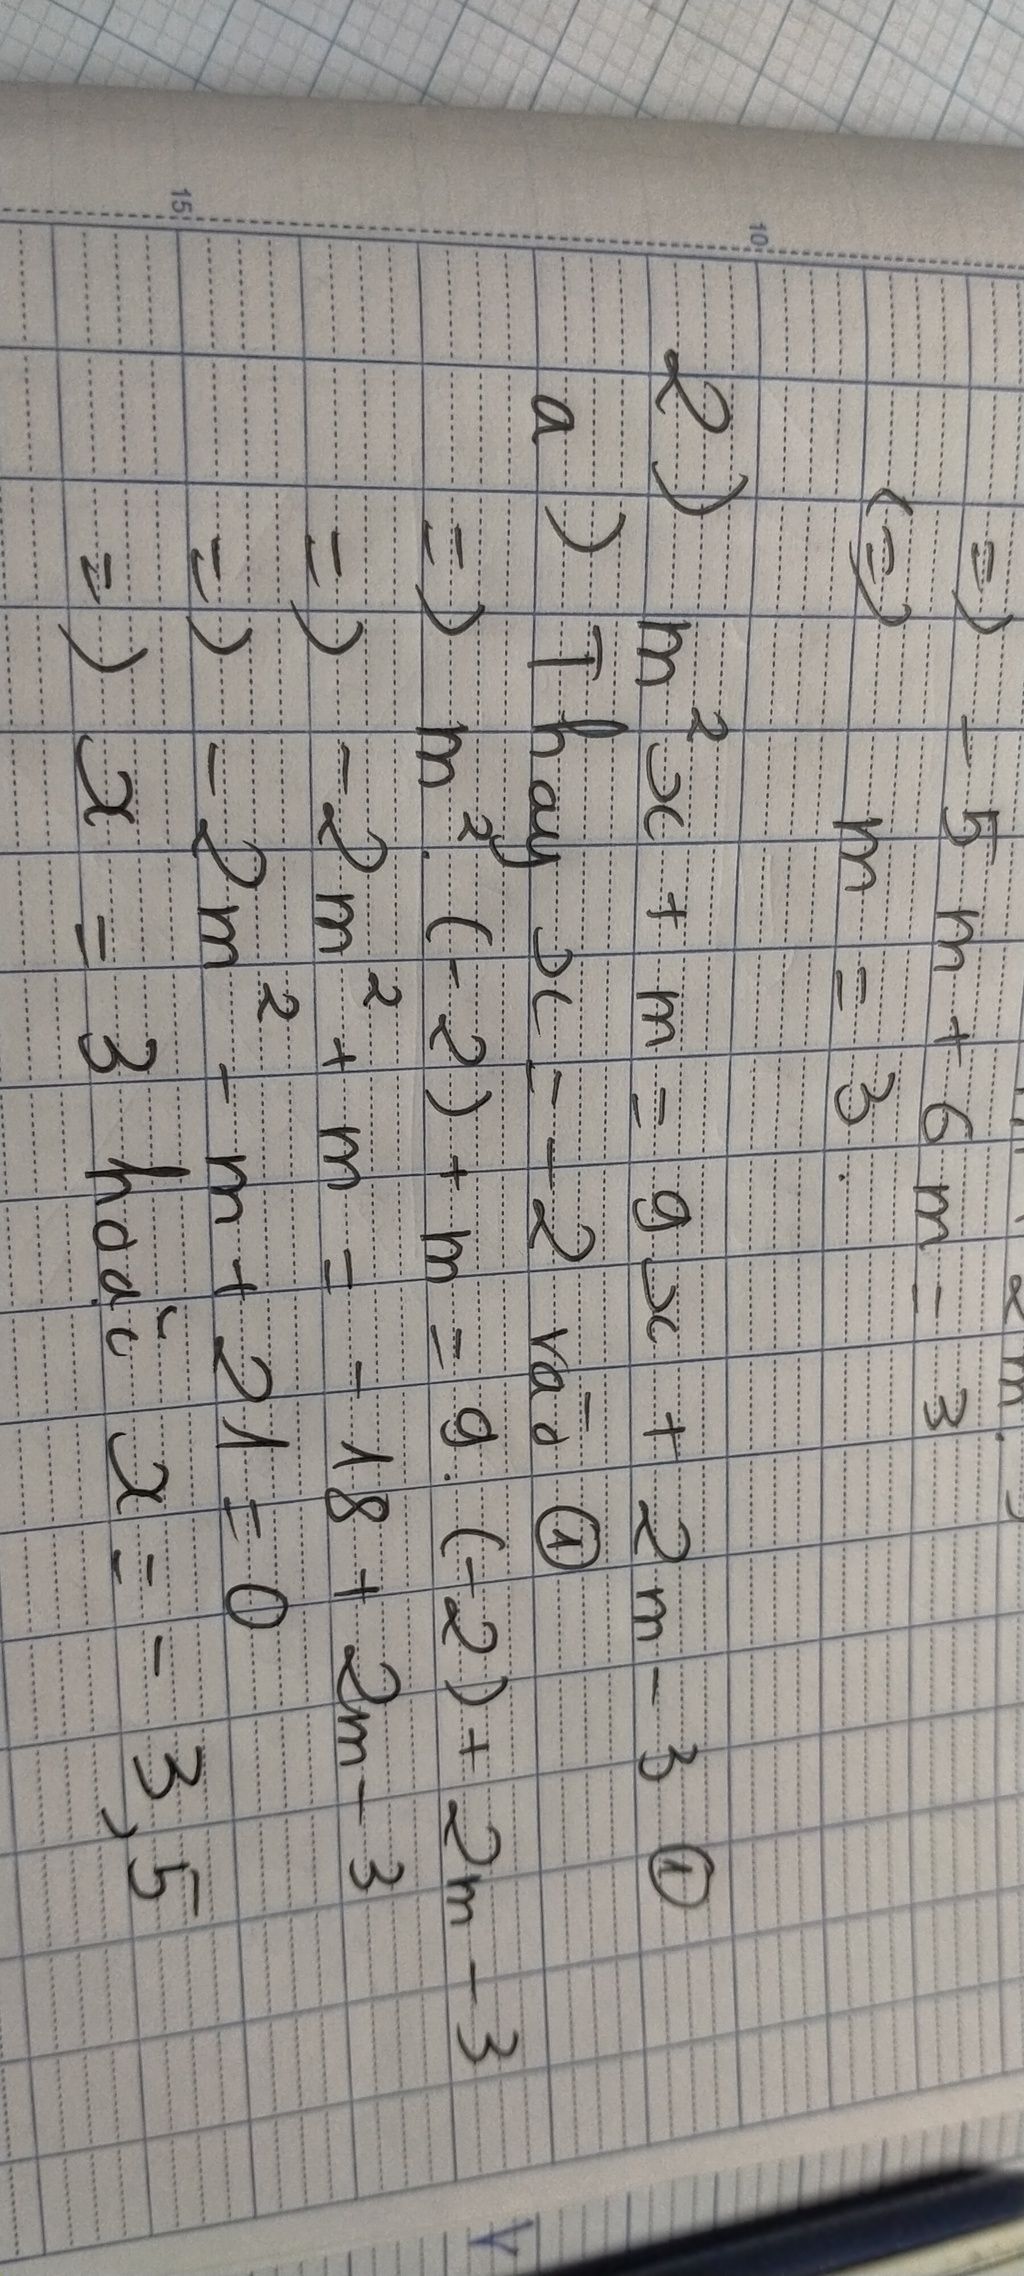 =) - 5m + 6m = 3
(=) m = 3.
10
2) m²x + m = 9x + 2m - 3 ①
a) Thay x = -2 vào ①
=) m². (-2) + m = 9. (-2) + 2m - 3
=) -2m² + m = - 18 + 2m - 3
=) -2m² - m + 21 = 0
15
=) x = 3 hoặc x = - 3,5